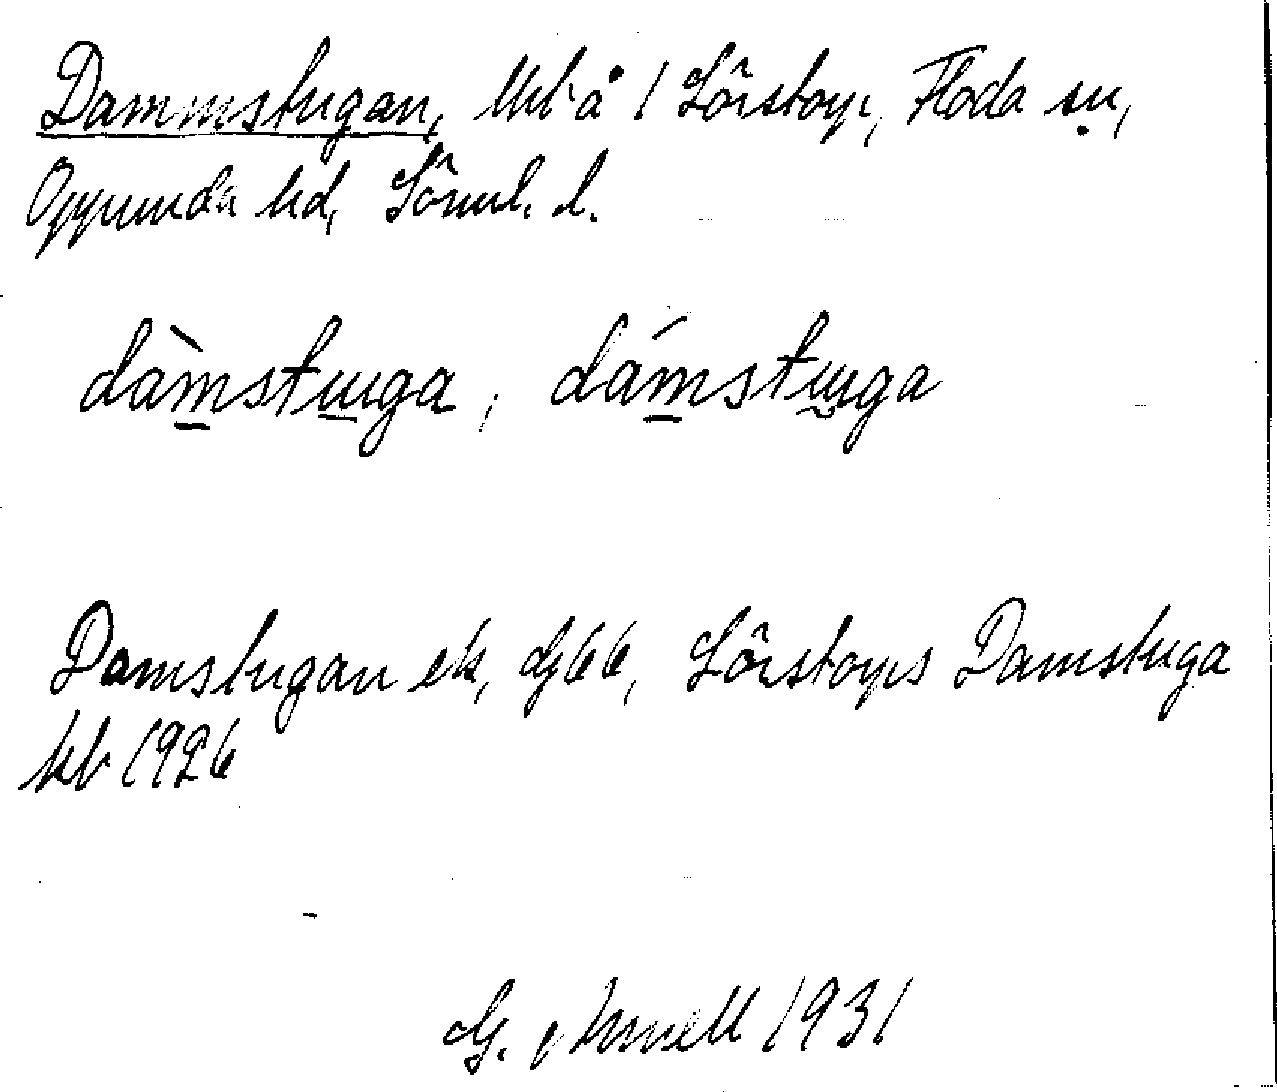 Dammstugan, Utb å 1 Lövstorp, Floda sn,
Oppunda hd, Söml. l.
dàmstuga, dámstuga
Damstugan ek, Gf 66, Lövstorps Damstuga
kb 1926
G. 1931